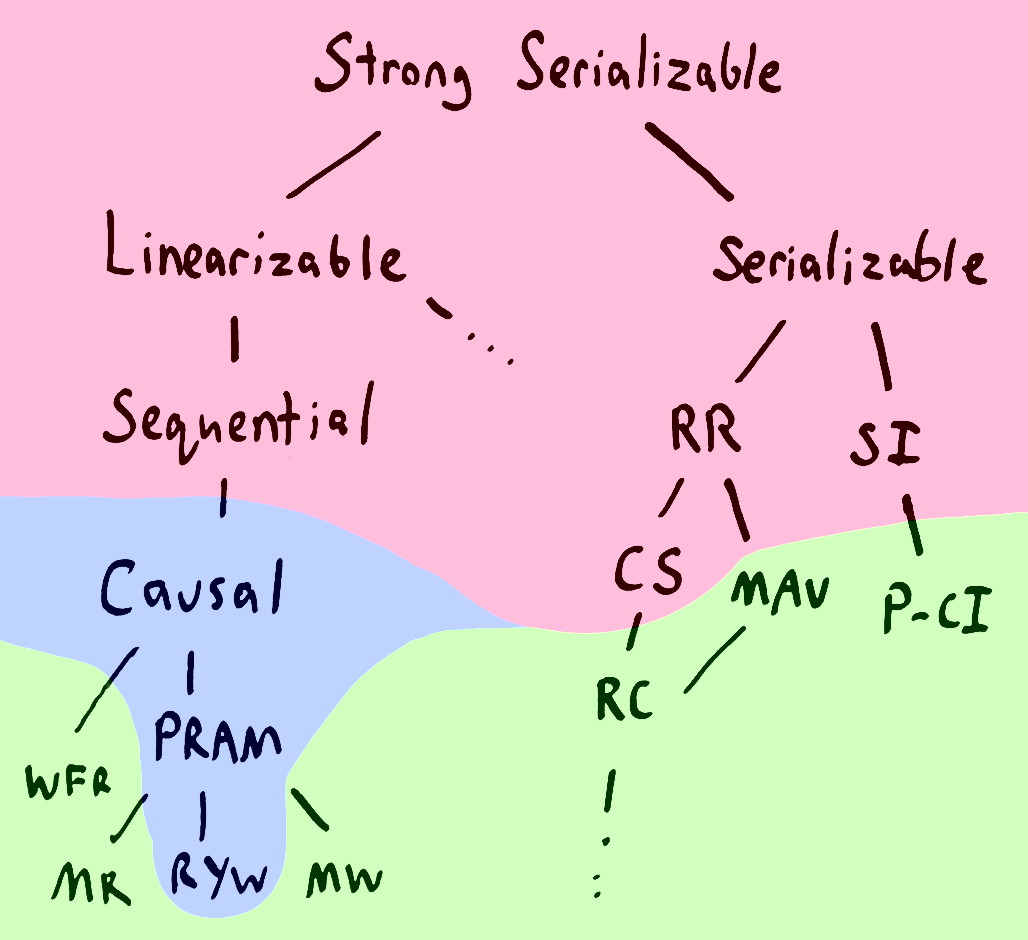 Strong Serializable
Linearizable
Serializable
...
Sequential
RR
SI
Causal
CS
MAV
P-CI
RC
PRAM
WFR
MR
RYW
MW